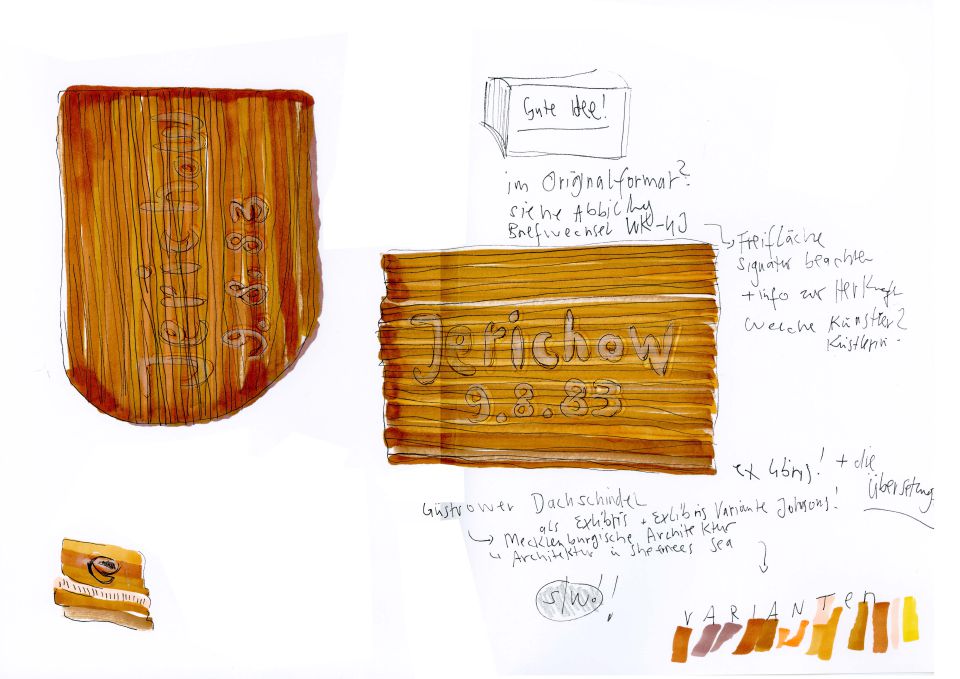 Jerichow
9.8.83
Gute Idee!
im Originalformat?
siehe Abbildung
Briefwechsel
Freifläche
Signatur beachten
+ info zur Herkunft
Welche Künstler?
Jerichow
9.8.83
ex libris! + die
Übersetzung
Güstrower Dachschindel
als Exlibris + Exlibris Variante Johnsons!
Mecklenburgische Architektur
Architektur in Sheerness Sea
s/w!!
VARIANTEn